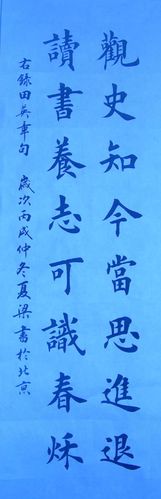 觀史知今當思進退
讀書養志可識春秌
右錄田英章句 歲次丙戌仲冬夏梁書於北京